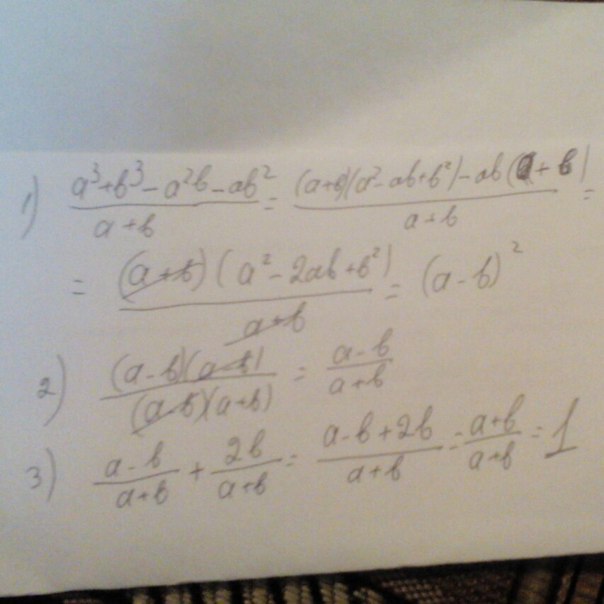 1) (a³+b³-a²b-ab²)/(a+b) = ((a+b)(a²-ab+b²)-ab(a+b))/(a+b) =
= ((a+b)(a²-2ab+b²))/(a+b) = (a-b)²
2) ((a-b)(a-b))/((a-b)(a+b)) = (a-b)/(a+b)
3) (a-b)/(a+b) + 2b/(a+b) = (a-b+2b)/(a+b) = (a+b)/(a+b) = 1